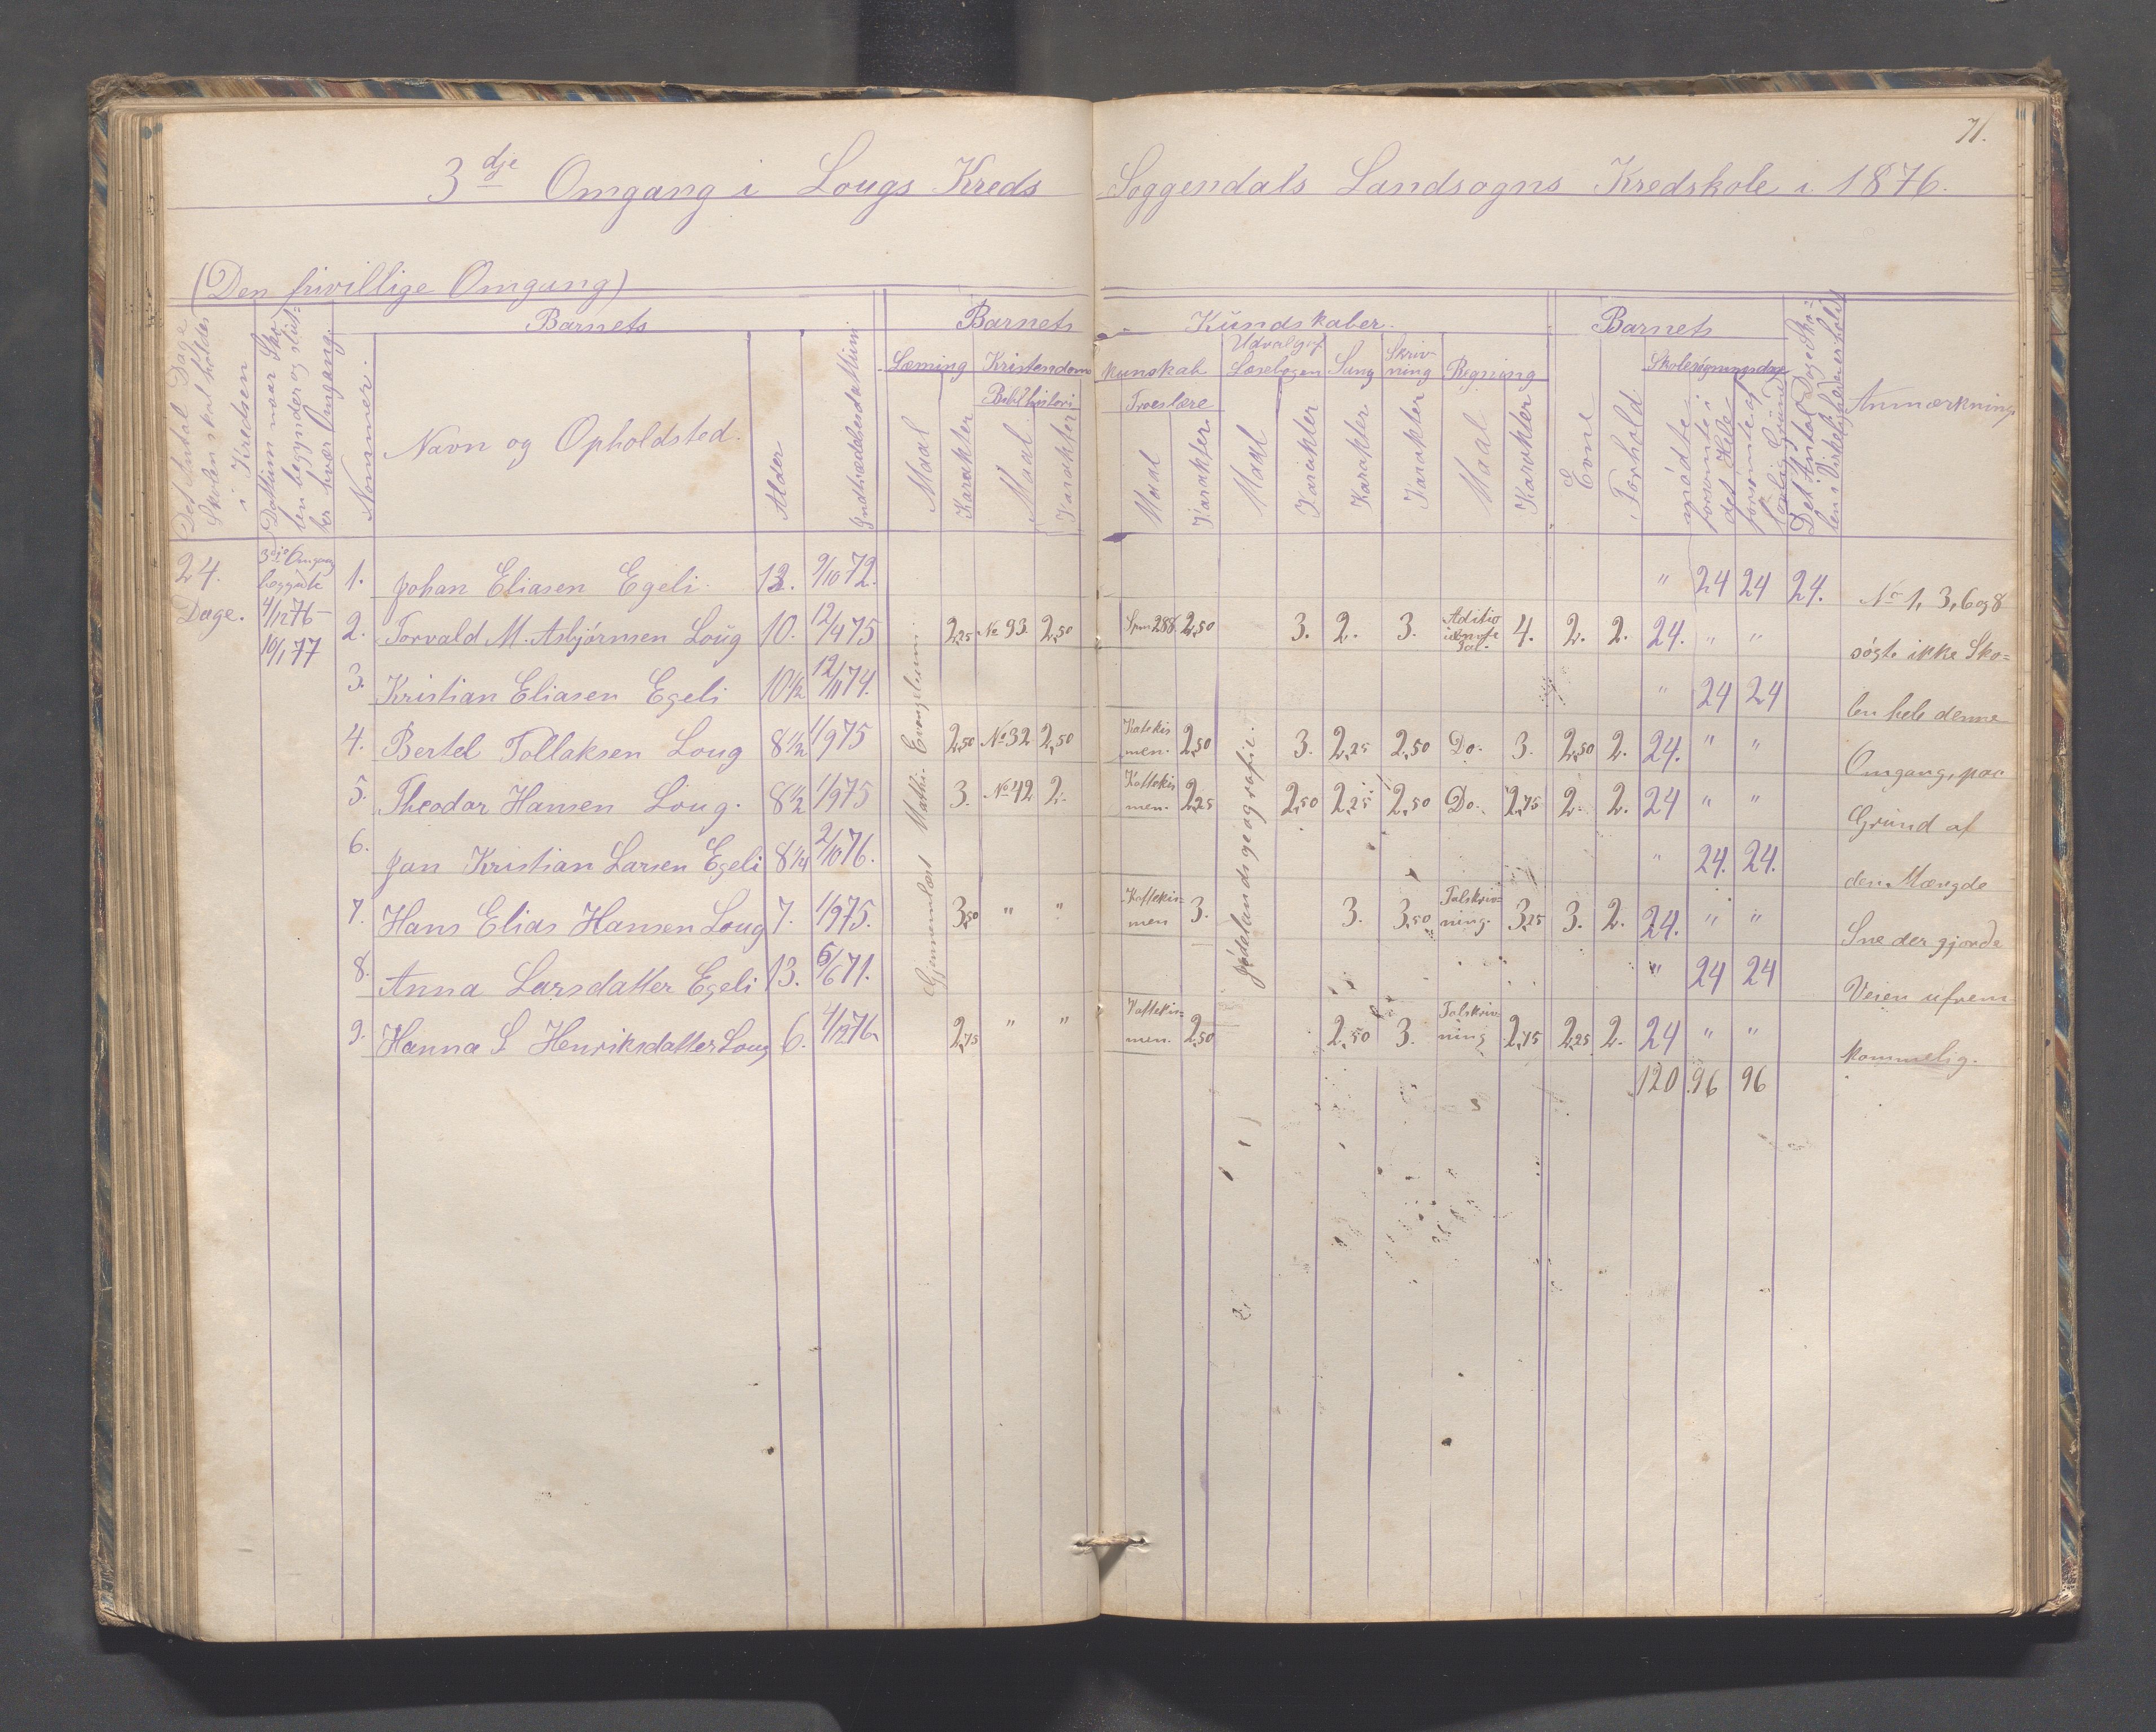 71.
3dje Omgang i Lougs Kreds Soggendals Landsogns Kredskole i 1876.
(Den frivillige Omgang)
Det Antal Dage Skolen skal holdes i Kredsen
Dattum naar Skolen begynder og slutter hvær Omgang.
Barnets
Nommer.
Navn og Opholdsted.
Alder
Indtrædelsesdattum
Barnets Kundskaber.
Læsning
Maal
Karakter
Kristendoms kunskab
Bibelhistori
Maal
Karakter
Troeslære
Maal
Karakter.
Udvalg af Læsebogen
Maal
Karakter
Sang
Karakter
Skriv-
ning
Karakter
Regning
Maal
Karakter
Barnets
Evne
Forhold.
Skolesøgningsdage
mødte
forsømte i det Hele
forsømte af Grund
Det Antal Dage Skolen i Virkeligheden er holdt
Anmærkning.
24. Dage.
3die Omgang begynte 4/12 76 – 10/1 77
1. Johan Eliasen Egeli 12. 9/10 72. " 24 24 24.
2. Torvald M. Asbjørnsen Loug 10. 12/4 75 2,25 No 93. 2,50 Spm 288 2,50 3. 2. 3. Aditio 4. 2. 2. 24. " "
3. Kristian Eliasen Egeli 10 1/2 12/11 74. " 24 24
4. Bertel Tollaksen Loug 8 1/2 1/9 75 2,50 No 32 2,50 Katekis
men. 2,50 3. 2,25 2,50 Do. 3. 2,50 2. 24. " "
5. Theodor Hansen Loug. 8 1/2 1/9 75 3. No 42 2. Kattekis
men. 2,25 2,50 2,25 2,50 Do. 2,75 2. 2. 24 " "
6. Jan Kristian Larsen Egeli 8 1/4 2/10 76. " 24. 24.
7. Hans Elias Hansen Loug 7. 1/9 75. 3,50 " " Kattekis-
men 3. 3. 3,50 Talskriv-
ning. 3,25 3. 2. 24. " "
8. Anna Larsdatter Egeli 13. 5/6 71. " 24 24
9. Hanna S Henriksdatter Loug 6. 4/12 76. 2,75 " " Kattekis-
men. 2,50 2,50 3. Talskriv-
ning 2,75 2,25 2. 24 " "
120 96 96
Gjennemlæst Mathæi Evangelium.
Jødelandsgeografie.
No 1, 3, 6 og 8
søgte ikke Sko=
len hele denne
Omgang, paa
Grund af
den Mængde
Sne der gjorde
Veien ufrem
kommelig.